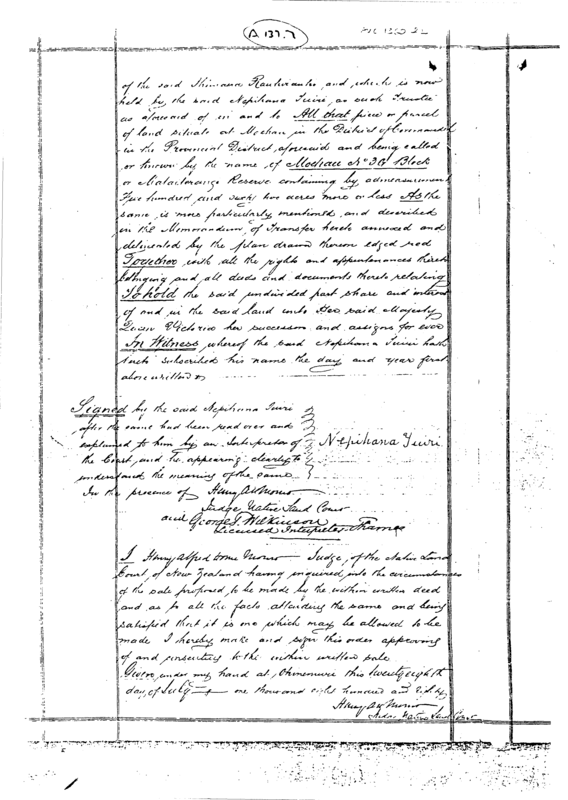 A 137.7
of the said Ihimana and which is now
held by the said Nepihana Tuiri, as such Trustee
as aforesaid of in and to All that piece or parcel
of land situate at in the District of Coromandel
in the Provincial District aforesaid and being called
or known by the name of Block
or Reserve containing by admeasurement
Five hundred and two acres more or less As the
same is more particularly mentioned and described
in the Memorandum of Transfer hereto annexed and
delineated by the plan drawn thereon edged red
Together with all the rights and appurtenances thereto
belonging and all deeds and documents thereto relating
To hold the said undivided part share and interest
of and in the said land unto Her said Majesty
Queen Victoria her successors and assigns for ever
In Witness whereof the said Nepihana Tuiri hath
hereto subscribed his name the day and year first
above written
Signed by the said Nepihana Tuiri
after the same had been read over and
explained to him by an Interpreter of
the Court, and he appearing clearly to
understand the meaning of the same
Nepihana Tuiri
In the presence of Henry A H Monro
Judge Native Land Court
and George T. Wilkinson
Licensed Interpreter Thames
I Henry Alfred Home Monro Judge, of the Native Land
Court, of New Zealand having inquired into the circumstances
of the sale proposed to be made by the within written deed
and as to all the facts attending the same and being
satisfied that it is one which may be allowed to be
made I hereby make and sign this order approving
of and consenting to the within written sale
Given under my hand at Ohinemuri this twenty eighth
day of July one thousand eight hundred and
Henry A H Monro
Judge Native Land Court